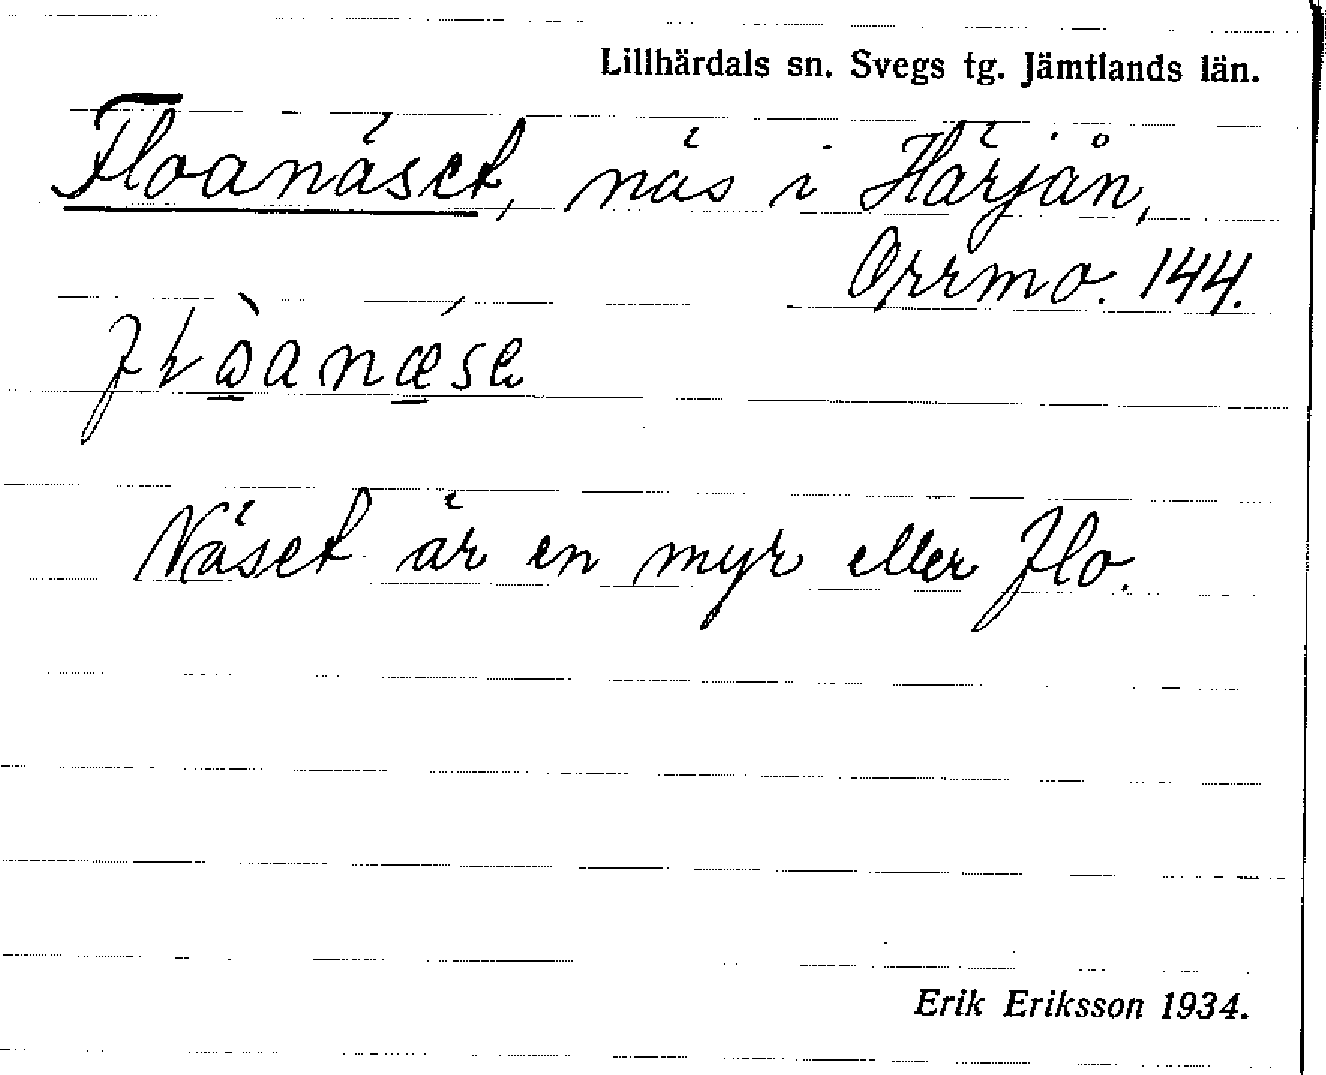 Lillhärdals sn. Svegs tg. Jämtlands län.
Floanäset, näs i Härjån,
Orrmo. 144.
Näset är en myr eller flo.
Erik Eriksson 1934.